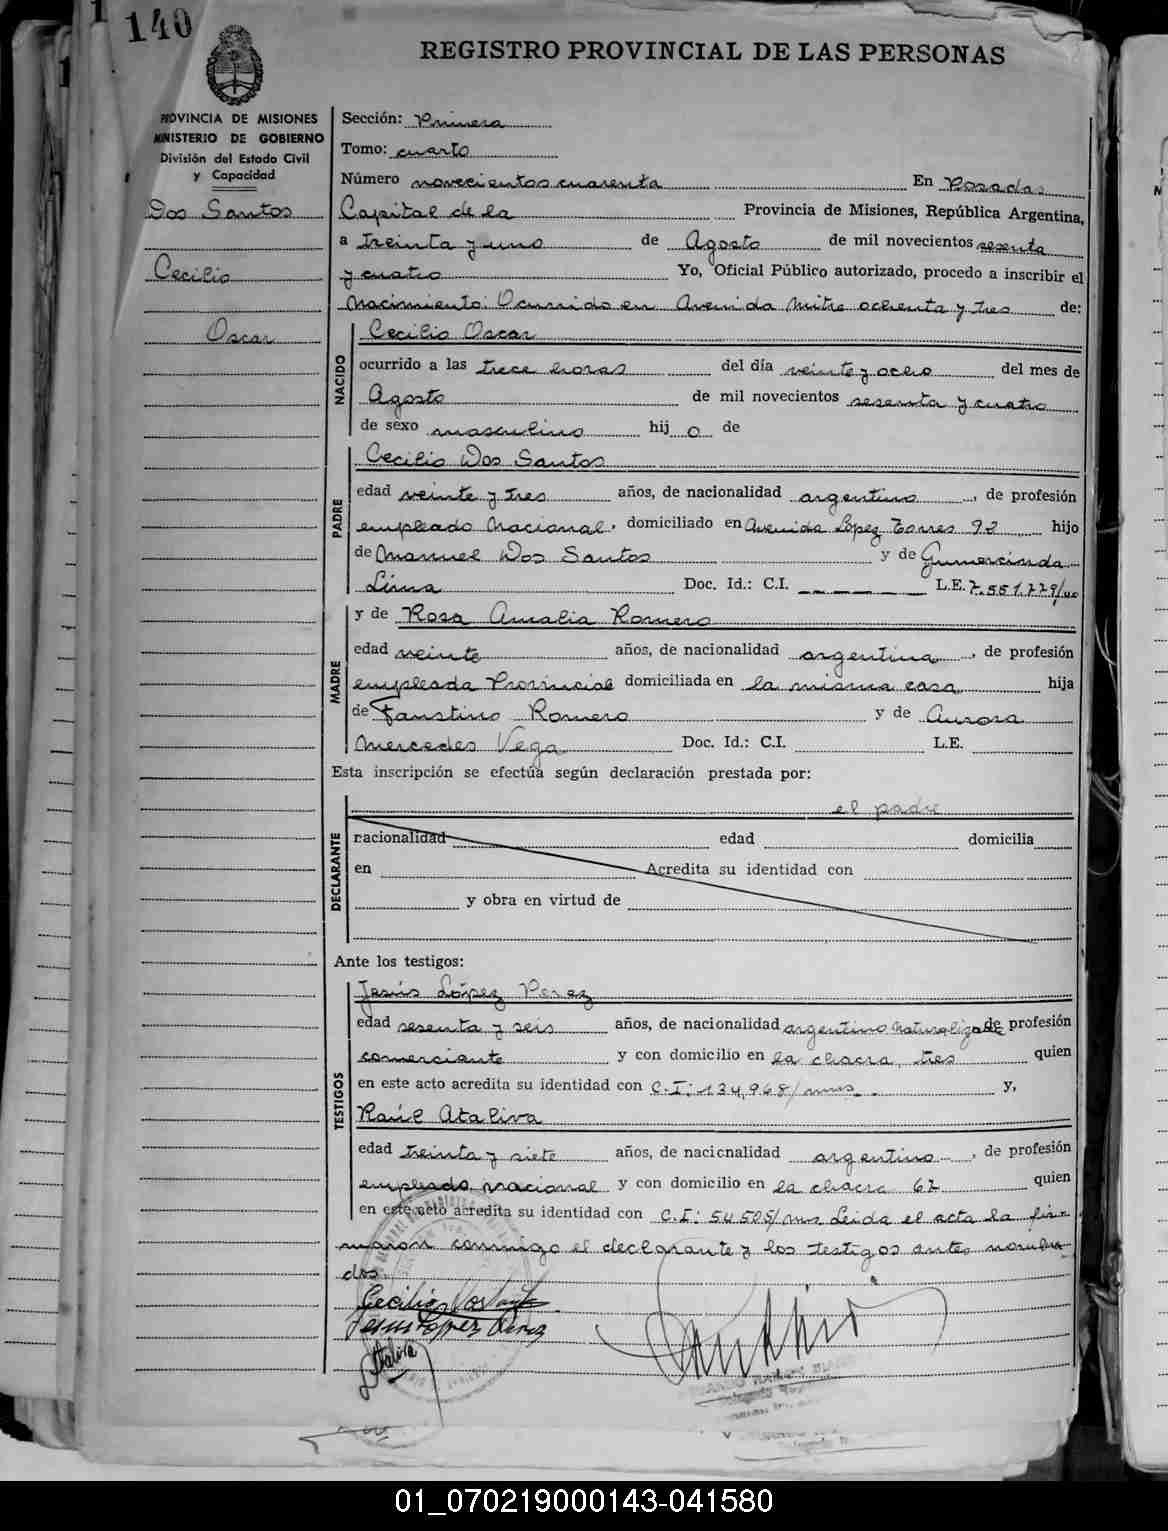 140
REGISTRO PROVINCIAL DE LAS PERSONAS
PROVINCIA DE MISIONES
MINISTERIO DE GOBIERNO
División del Estado Civil
y Capacidad
Dos Santos
Cecilio
Oscar
Sección: Primera
Tomo: cuarto
Número novecientos cuarenta En Posadas
Capital de la Provincia de Misiones, República Argentina,
a treinta y uno de Agosto de mil novecientos sesenta
y cuatro Yo, Oficial Público autorizado, procedo a inscribir el
Nacimiento: Ocurrido en Avenida Mitre ochenta y tres de:
NACIDO
Cecilio Oscar
ocurrido a las trece horas del día veinte y ocho del mes de
Agosto de mil novecientos sesenta y cuatro
de sexo masculino hij o de
PADRE
Cecilio Dos Santos
edad veinte y tres años, de nacionalidad argentino, de profesión
empleado Nacional, domiciliado en Avenida López Torres 92 hijo
de Manuel Dos Santos y de Gumercinda
Lima Doc. Id.: C.I. L.E. 7.551.779/
MADRE
y de Rosa Amalia Romero
edad veinte años, de nacionalidad argentina, de profesión
empleada Provincial domiciliada en la misma casa hija
de Faustino Romero y de Aurora
Mercedes Vega Doc. Id.: C.I. L.E.
Esta inscripción se efectúa según declaración prestada por:
DECLARANTE
el padre
nacionalidad edad domicilia
en Acredita su identidad con
y obra en virtud de
Ante los testigos:
TESTIGOS
Jesús López Perez
edad sesenta y seis años, de nacionalidad argentino naturalizado de profesión
comerciante y con domicilio en la chacra tres quien
en este acto acredita su identidad con C.I: 134,968/mns. y,
Raúl Ataliva
edad treinta y siete años, de nacionalidad argentino, de profesión
empleado nacional y con domicilio en la chacra 62 quien
en este acto acredita su identidad con C.I: 54505/ms Leida el acta la fir-
maron conmigo el declarante y los testigos antes nombra
dos.
Cecilio Dos Santos
Jesus Lopez Perez
Ataliva
01_070219000143-041580